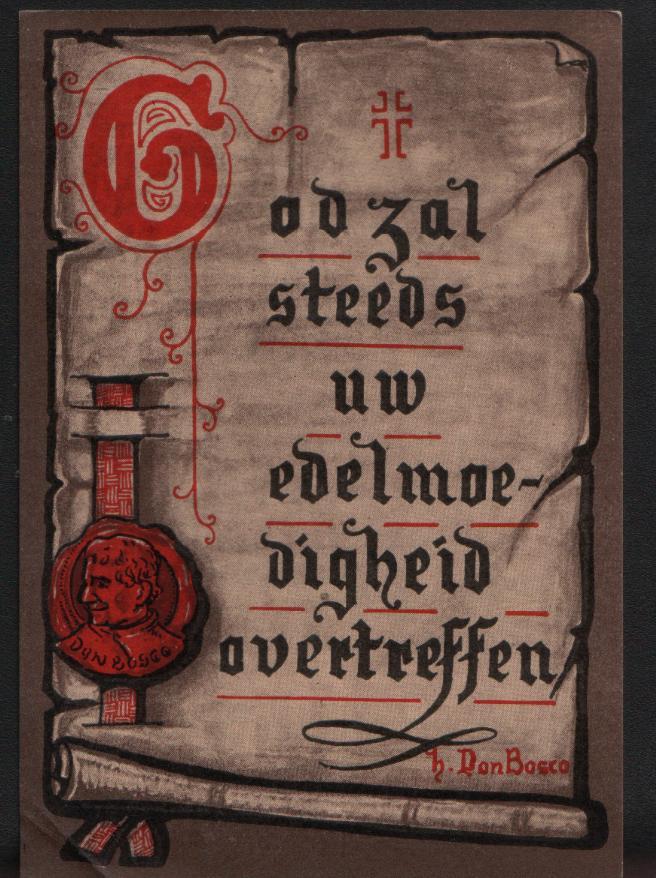 God zal
steeds
uw
edelmoe-
digheid
overtreffen
h. Don Bosco
DON BOSCO